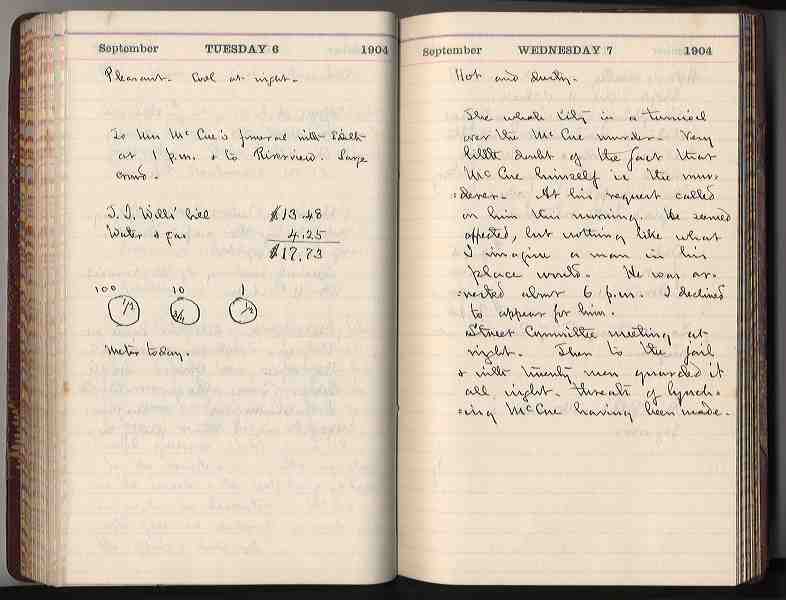 September TUESDAY 6 1904
Pleasant. Cool at night.
To Mrs McCue's funeral with Edith
at 1 p.m. & to Riverview. Large
crowd.
J. D. Wills' bill $13.48
Water & gas 4.25
$17.73
100 10 1
Meter today.
September WEDNESDAY 7 1904
Hot and dusty.
The whole City in a turmoil
over the McCue murder. Very
little doubt of the fact that
McCue himself is the mur-
:derer. At his request called
on him this morning. He seemed
affected, but nothing like what
I imagine a man in his
place would. He was ar-
:rested about 6 p.m. I declined
to appear for him.
Street Committee meeting at
night. Then to the jail
& with twenty men guarded it
all night. Threats of lynch-
:ing McCue having been made.